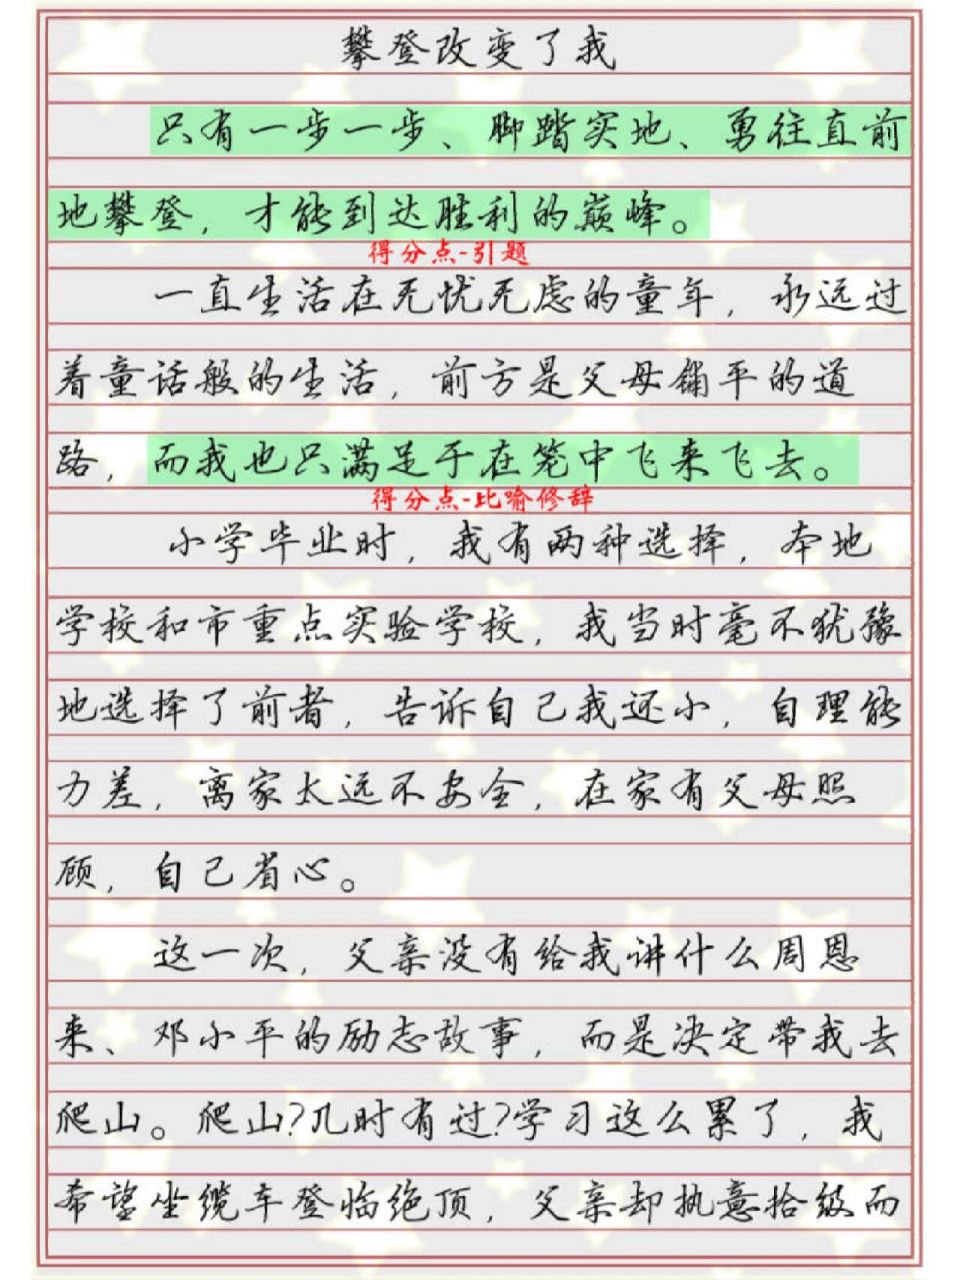 攀登改变了我
只有一步一步、脚踏实地、勇往直前
地攀登，才能到达胜利的巅峰。
得分点-引题
一直生活在无忧无虑的童年，永远过
着童话般的生活，前方是父母铺平的道
路，而我也只满足于在笼中飞来飞去。
得分点-比喻修辞
小学毕业时，我有两种选择，本地
学校和市重点实验学校，我当时毫不犹豫
地选择了前者，告诉自己我还小，自理能
力差，离家太远不安全，在家有父母照
顾，自己省心。
这一次，父亲没有给我讲什么周恩
来、邓小平的励志故事，而是决定带我去
爬山。爬山?几时有过?学习这么累了，我
希望坐缆车登临绝顶，父亲却执意拾级而